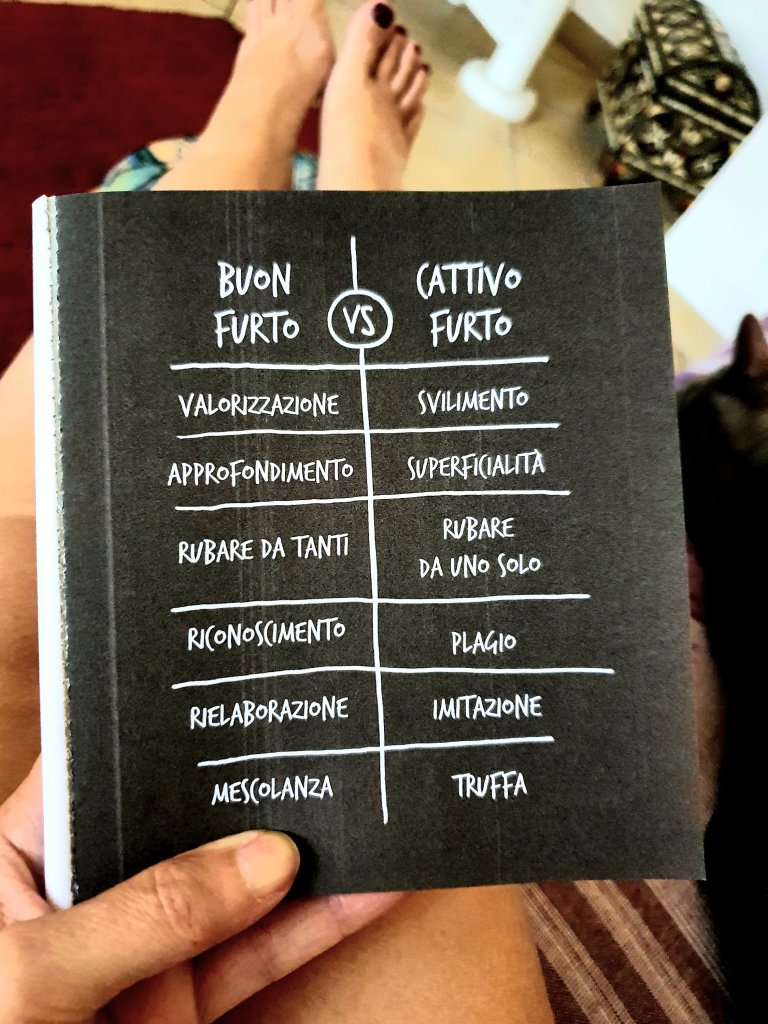 BUON FURTO VS CATTIVO FURTO
VALORIZZAZIONE SVILIMENTO
APPROFONDIMENTO SUPERFICIALITÀ
RUBARE DA TANTI RUBARE DA UNO SOLO
RICONOSCIMENTO PLAGIO
RIELABORAZIONE IMITAZIONE
MESCOLANZA TRUFFA